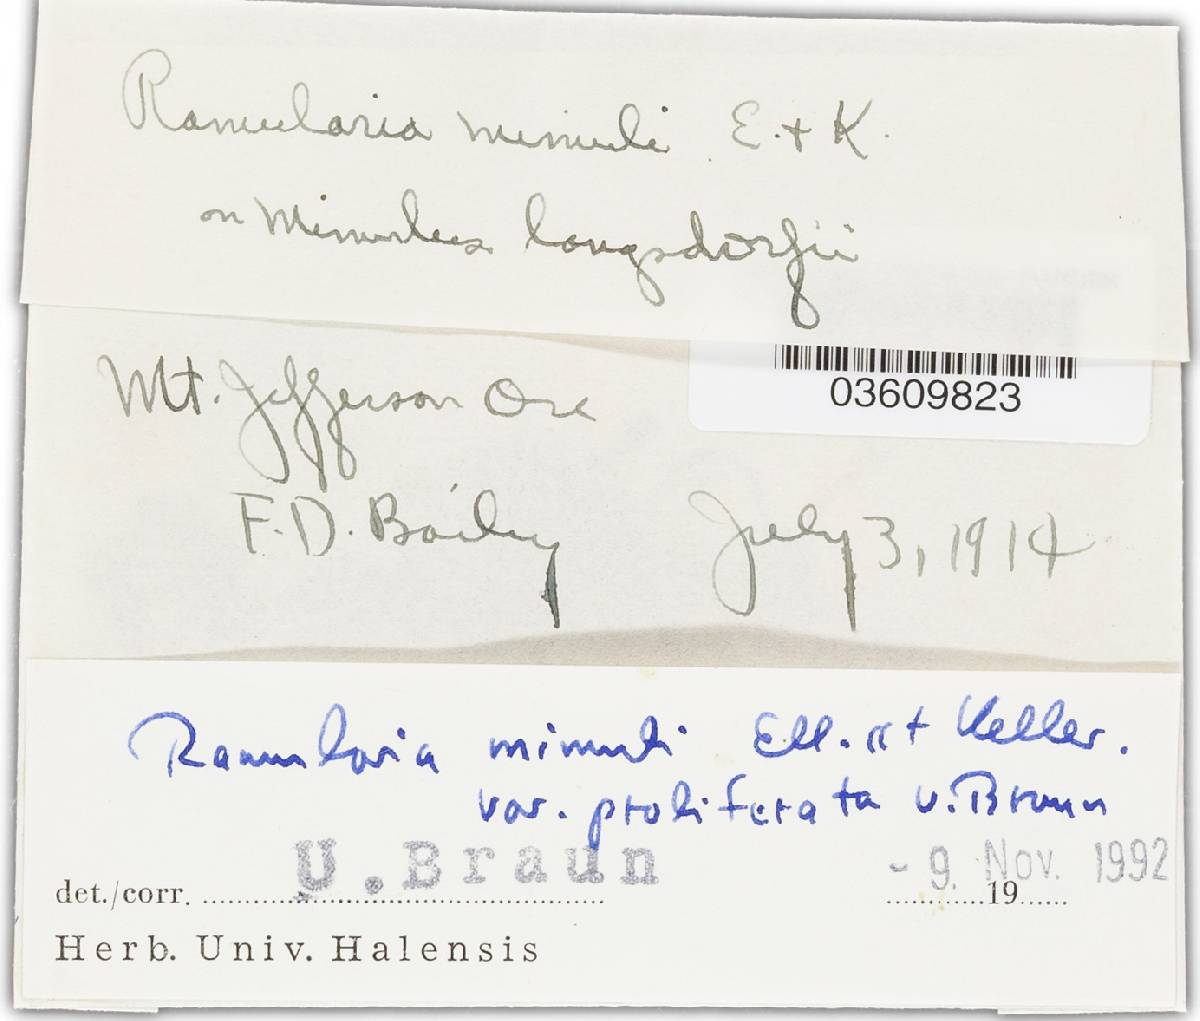 Ramularia mimuli E. + K.
on Mimulus langsdorfii
03609823
Mt. Jefferson Ore
F.D. Baily July 3, 1914
Ramularia mimuli Ell. et Keller.
var. proliferata U. Braun
det./corr. U. Braun - 9. Nov. 1992
19
Herb. Univ. Halensis